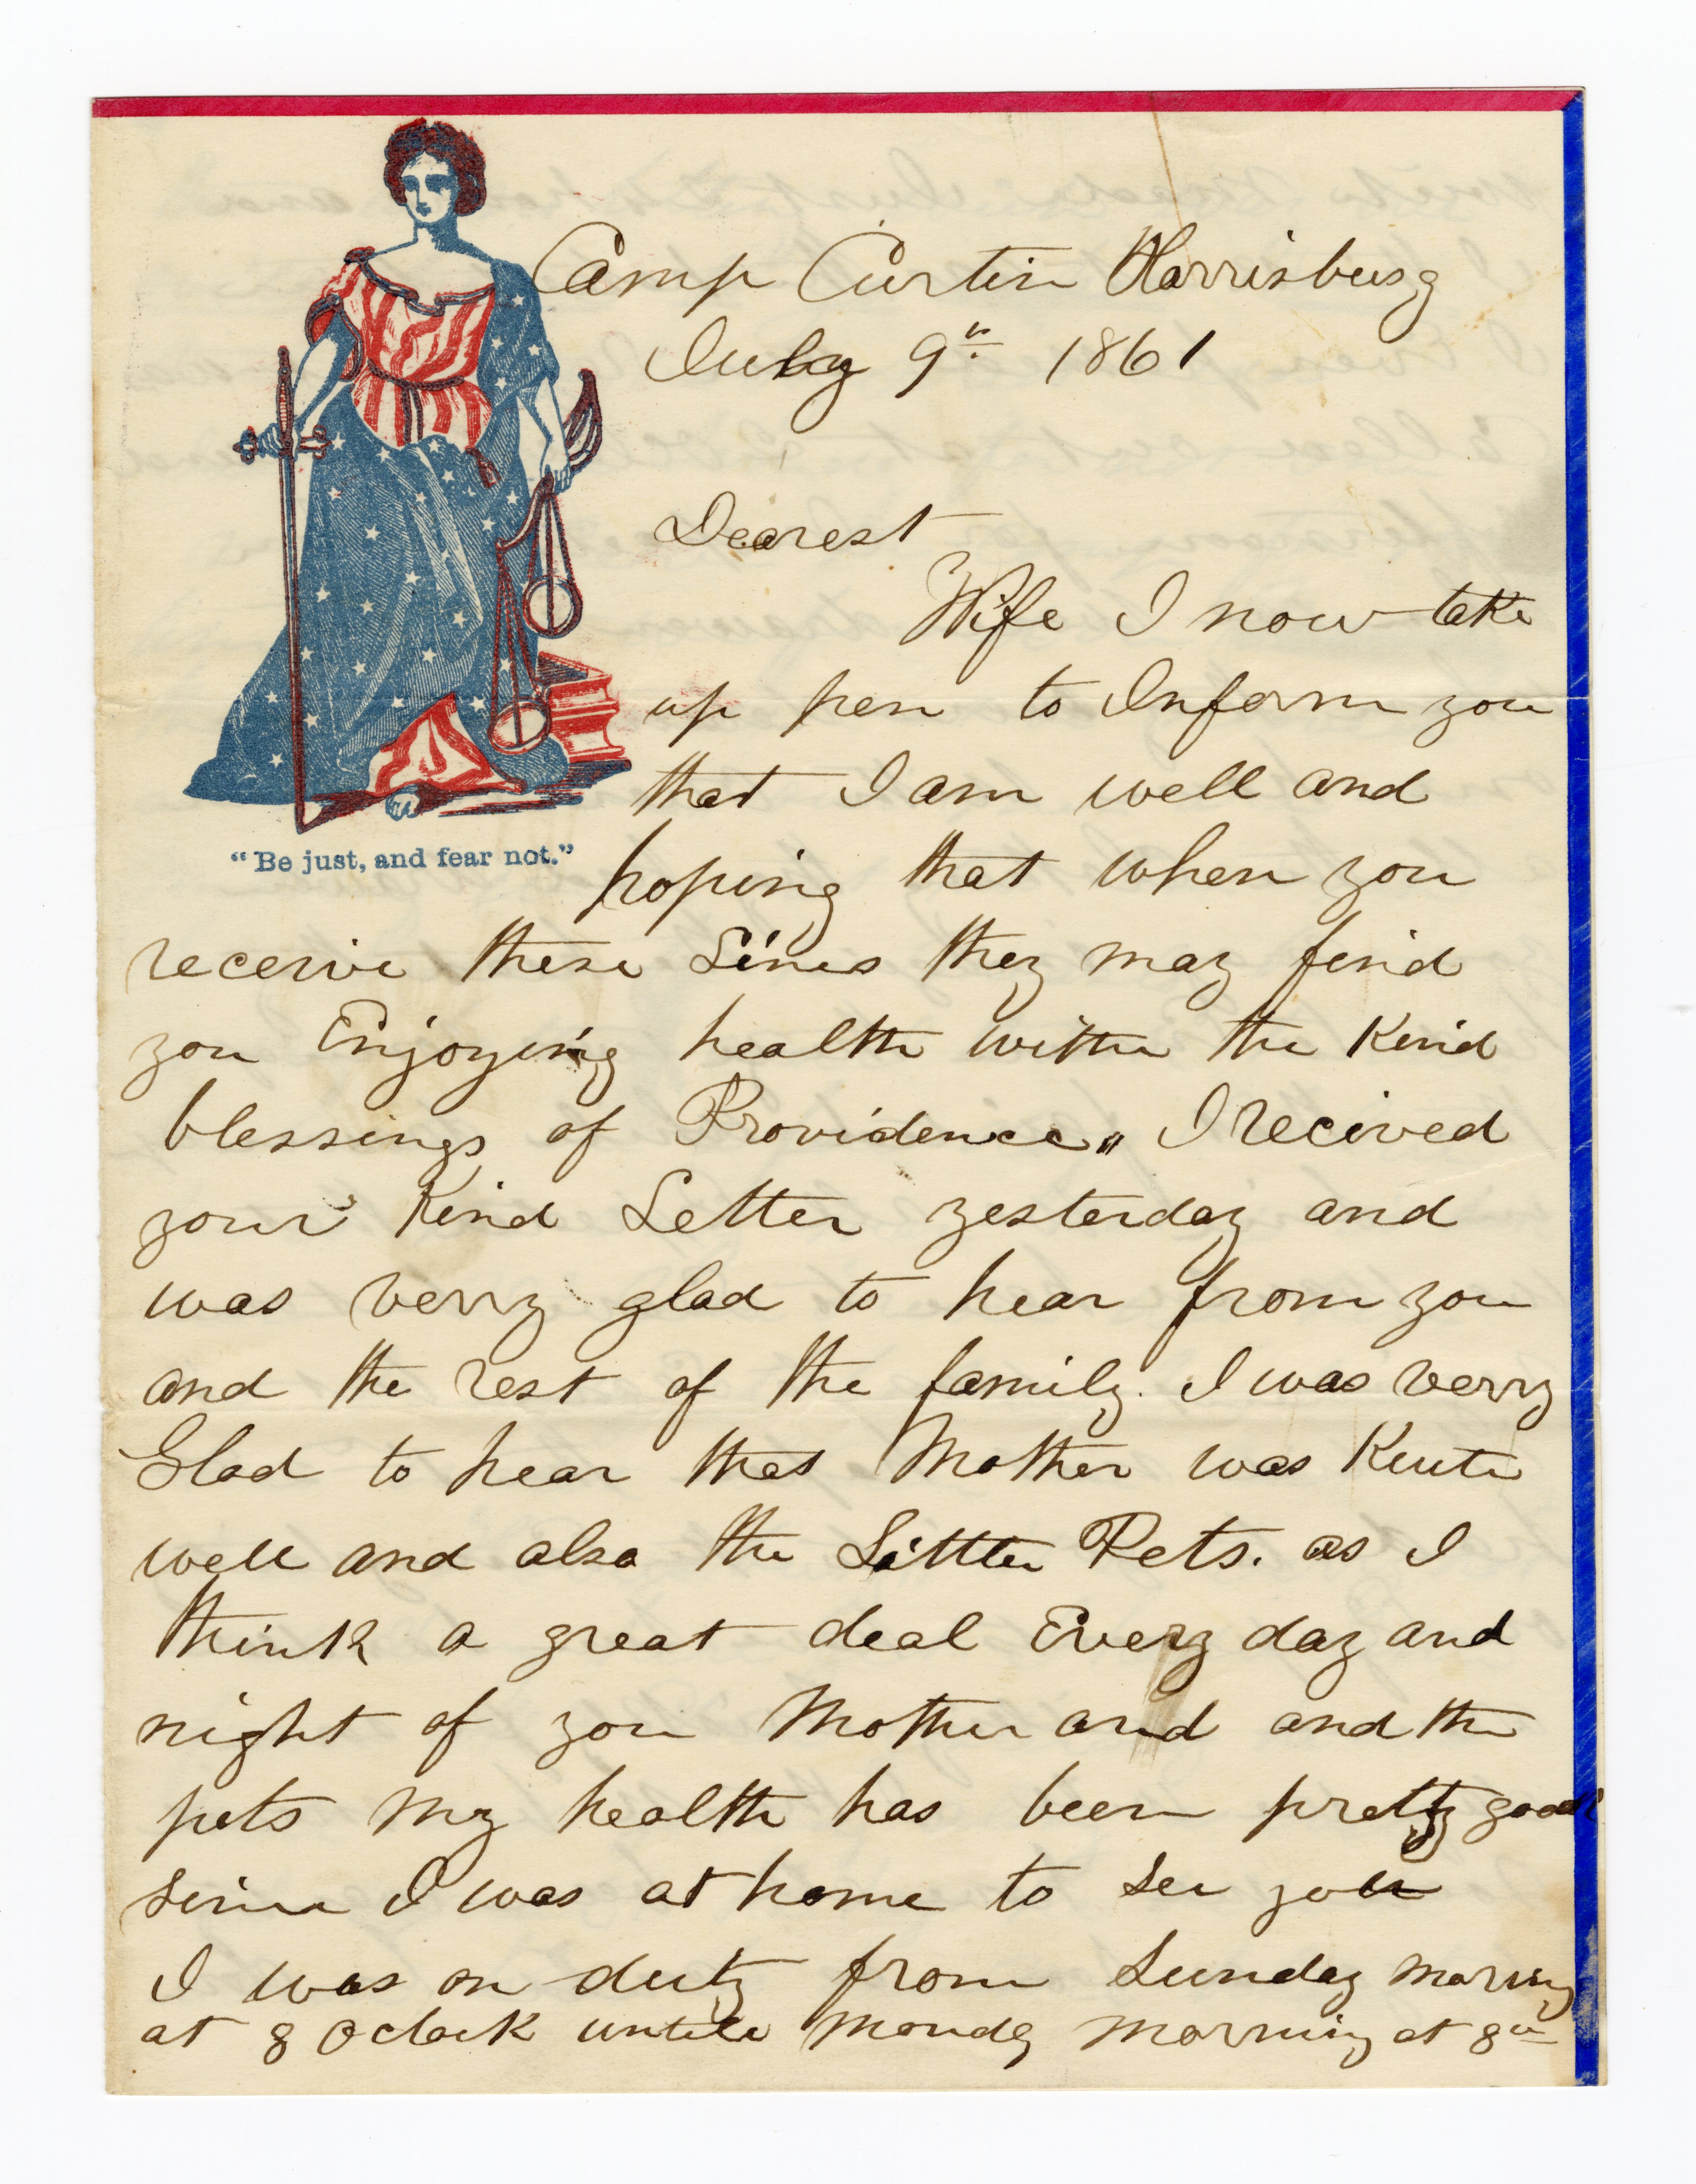 Camp Curtin Harrisburg
July 9th 1861
Dearest
Wife I now take
up pen to Inform you
that I am well and
"Be just, and fear not."
hoping that when you
receive these Lines they may find
you Enjoying health with the Kind
blessings of Providence„ I recived
your Kind Letter yesterday and
was verry glad to hear from you
and the rest of the family. I was verry
Glad to hear that Mother was Kuite
well and also the Little Pets. as I
think a great deal Every day and
night of you Mother and and the
pets My health has been pretty good
Since I was at home to See you
I was on duty from Sunday Morning
at 8 Oclock untill Monday Morning at 8